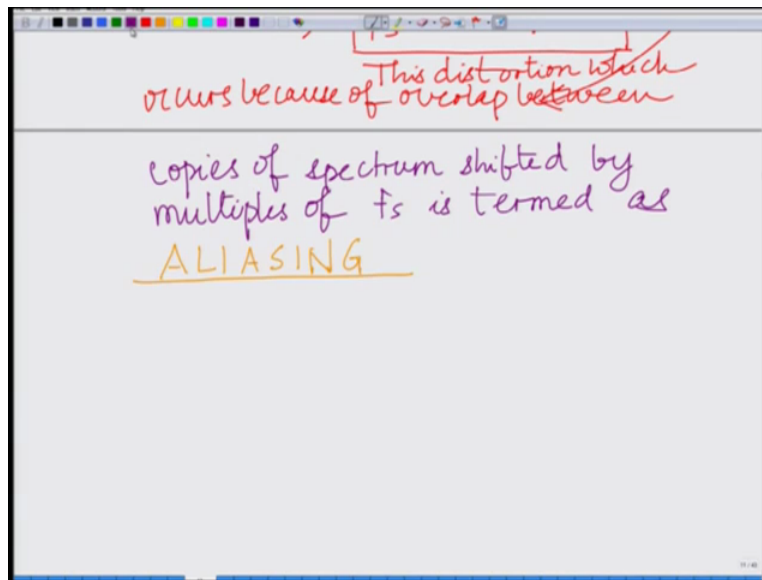 fs
This distortion which
occurs because of overlap between
copies of spectrum shifted by
multiples of fs is termed as
ALIASING